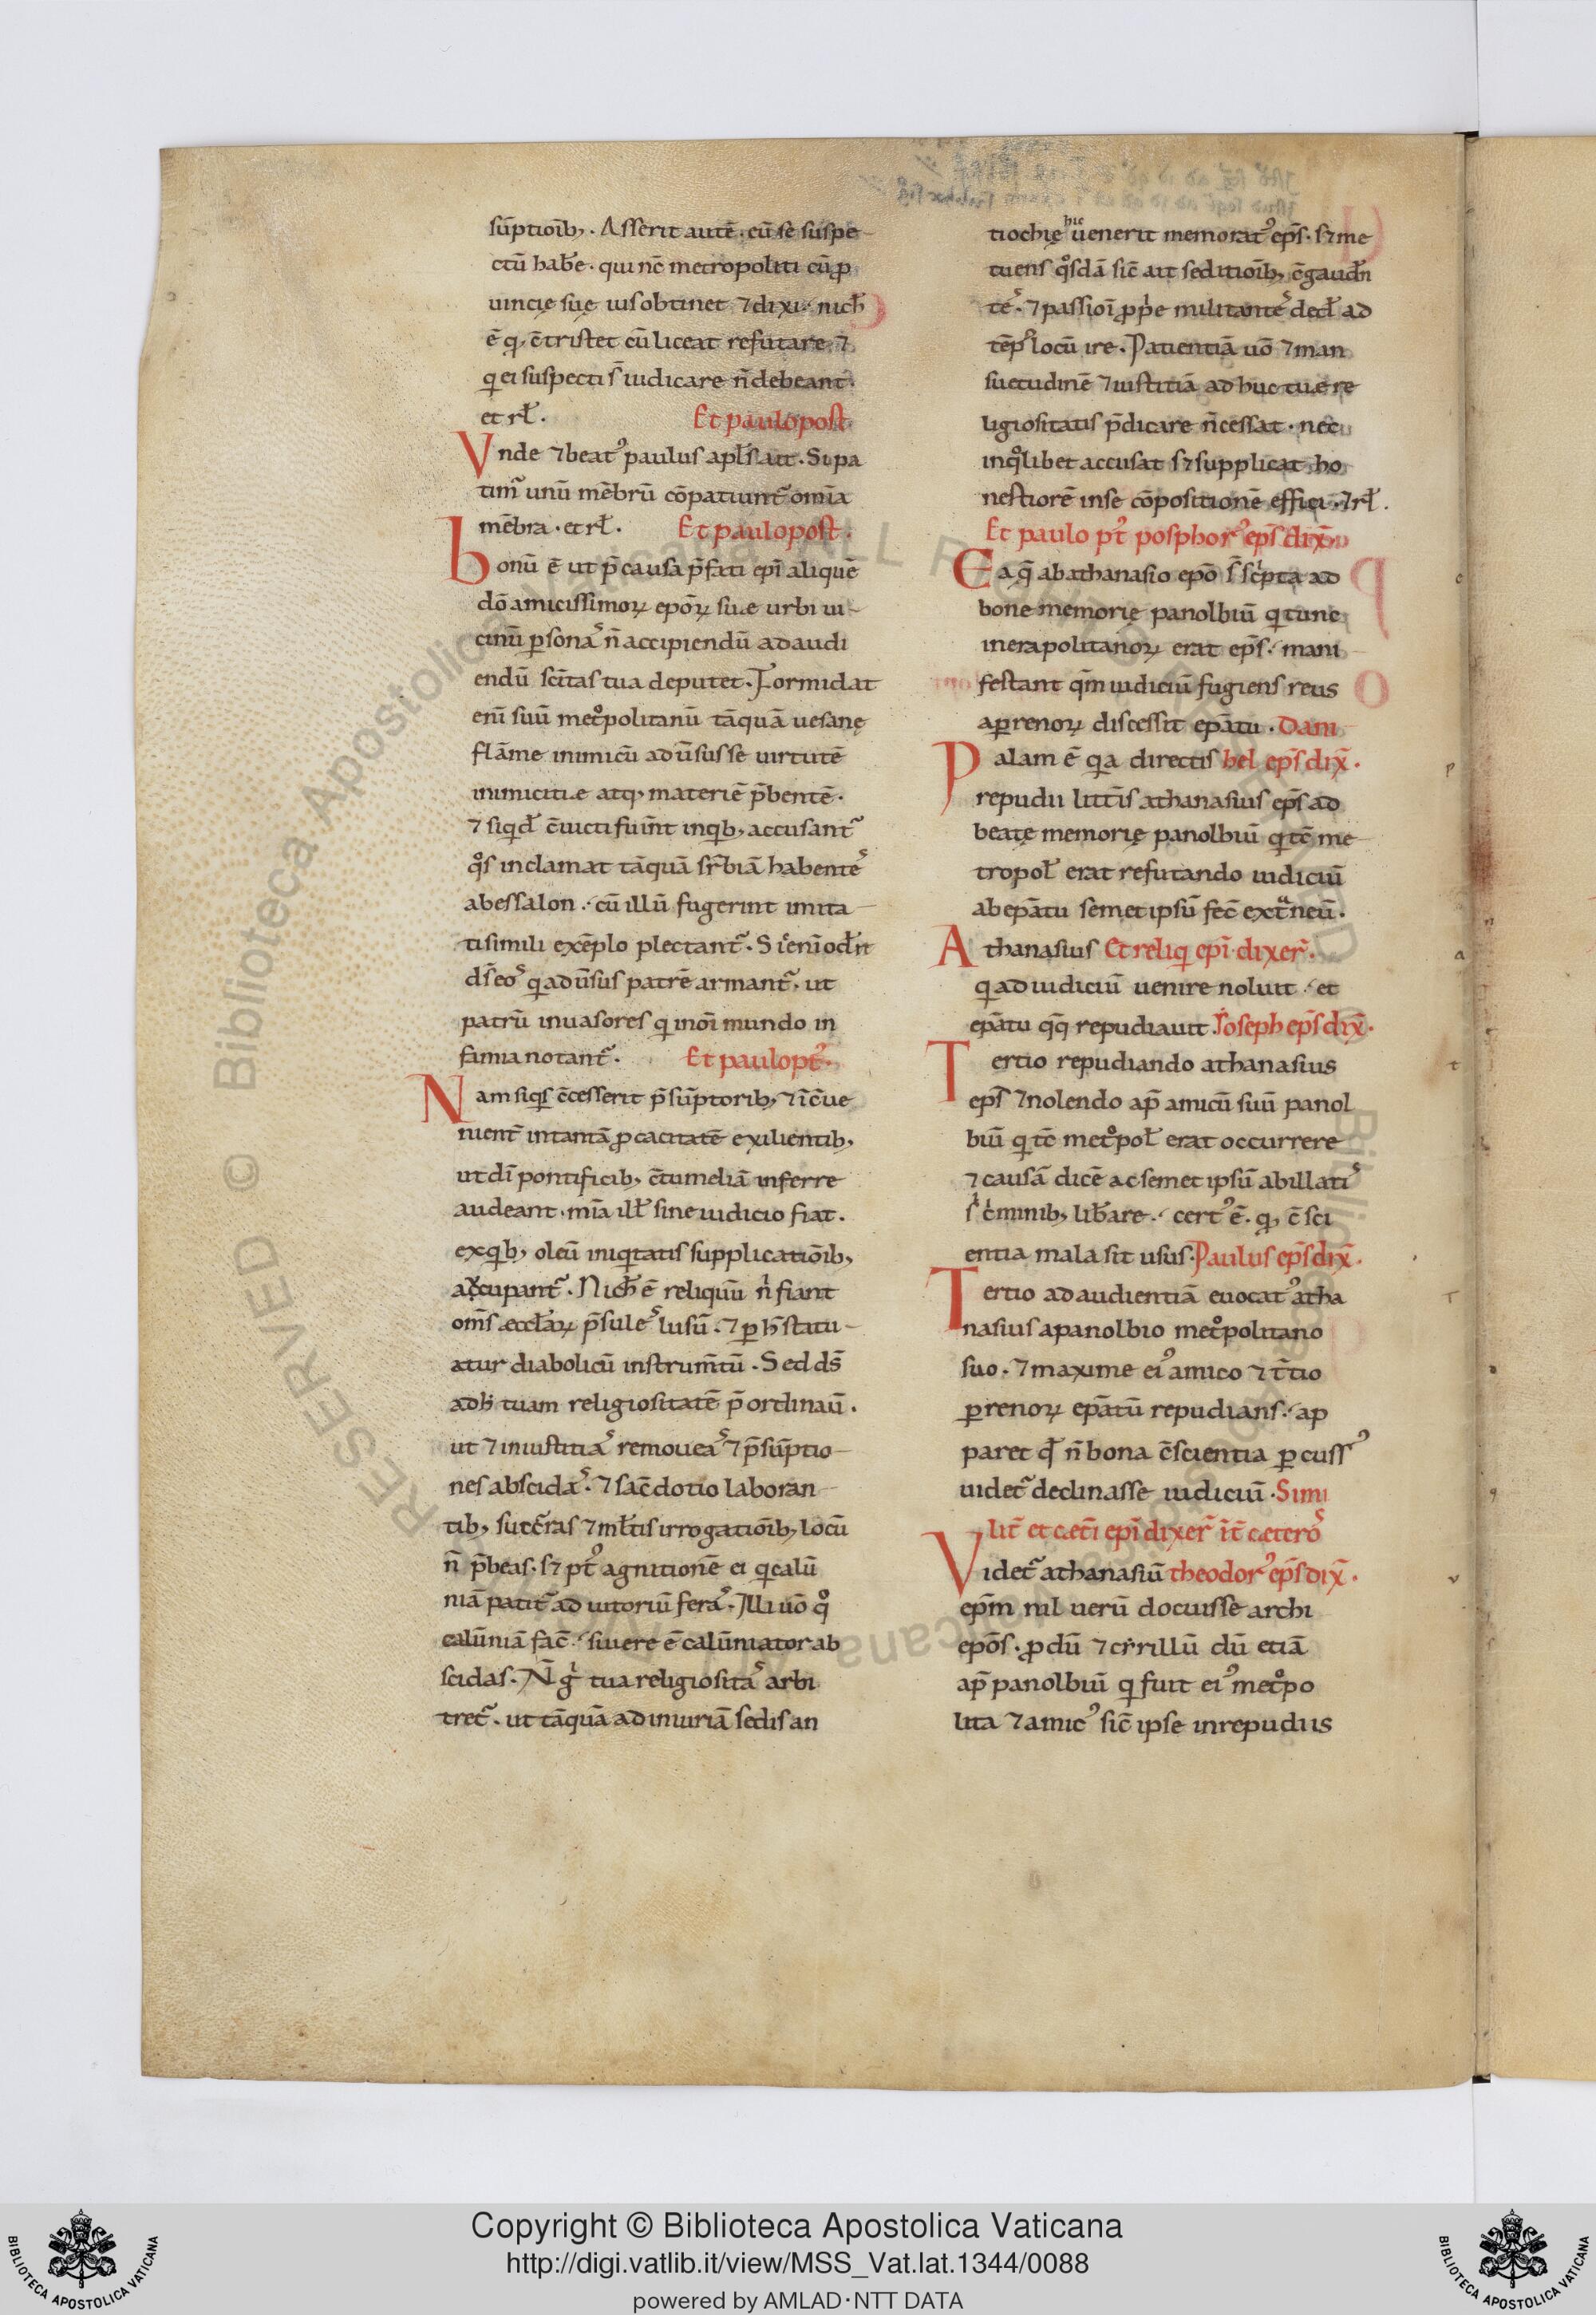 sūptioīb;. Asserit autē. eū se suspe
ctū hab̄e. qui nc̄ metropoliti cū ꝓ
uincię suę ius obtinet ⁊ dixi. nich̄
ē q; c̄tristet cū liceat refutare. ⁊
q ei suspecti s̄ iudicare n̄ debeant.
et rł. Et paulo post
Vnde ⁊ beat᾽ paulus apłs ait. Si pa
tim̄ unū mēbrū cōpatiunt̄ omīa
mēbra. et rł. Et paulo post.
bonū ē ut p̄ causa p̄fati epī aliquē
dō amicissimoꝝ epōꝝ suæ urbi ui
cinū ꝑsonas n̄ accipiendū ad audi
endū sc̄itas tua deputet. Formidat
enī suū met°politanū tāquā uesanę
flāme inimicū aduersus se uirtutē
inimicitiæ atq; materiē p̄bentē.
⁊ siqd̄ c̄uicti fuīnt in qb; accusant̄
q°s inclamat tāquā sr̄biā habentes
abessalon. cū illū fugerint imita
ti simili exēplo plectant̄. Sic enī od̄it
ds̄ eos q aduersus patrē armant̄. ut
patrū inuasores q in oī mundo in
famia notant̄. Et paulo pt᾽.
Nam siqs c̄cesserit p̄sūptorib; ⁊ ic̄ue
nient̄ in tantā ꝓcacitatē exilientib;
ut dī pontificib; c̄tumeliā inferre
audeant. mīa ill̄ sine iudicio fiat.
ex qb; oleū iniqtatis supplicatiōib;
accupant̄. Nich̄ ē reliquū n̄ fiant
om̄s æcclāꝝ p̄sules lusū. ⁊ ꝑ h̄ statu
atur diabolicū instrum̄tū. Sed ds̄
ad h̄ tuam religiositatē p̄ordinaū.
ut ⁊ iniustitias remoueas ⁊ p̄sūptio
nes abscidas. ⁊ sac̄dotio laboran
tib; succ̄ras ⁊ mł̄tis irrogatiōib; locū
n̄ p̄beas. sꝫ pt᾽ agnitionē ei q calū
niā patit̄ ad uitoriū feras. Illi uō q°
calūniā fac̄. si uere ē calūniator ab
scidas. N̄ g tua religiositas arbi
tret̄. ut tāquā ad iniuriā sedis an
tiochię hic uenerit memorat᾽ eps̄. sꝫ me
tuens q°sdā sic̄ ait seditioīb; c̄gaudn̄
tes. ⁊ passioī ꝓprie militantes decl̄ ad
tēp° locū ire. Patientiā uō ⁊ man
suetudinē ⁊ iustitiā ad huc tuæ re
ligiositatis p̄dicare n̄ cessat. nec̄
in q°libet accusat sꝫ supplicat ho
nestiorē in se cōpositionē effici. ⁊ rł.
Et paulo pt᾽ posphor᾽ eps̄ dix̄.
Ea q̄ ab athanasio epō s̄ sc̄pta ad
bone memorię panolbiū q tunc
inerapolitanoꝝ erat eps̄. mani
festant qm̄ iudiciū fugiens reus
aꝑrenoꝝ discessit epātu. Dani
Palam ē qa directis hel eps̄ dix̄.
repudii litt̄is athanasius eps̄ ad
beatę memorię panolbiū q tc̄ me
tropol̄ erat refutando iudiciū
ab epātu semet ipsū fec̄ ext̄neū.
Athanasius Et reliq epī dixer̄.
q ad iudiciū uenire noluit. et
epātu qq repudiauit. Ioseph eps̄ dix̄.
Tertio repudiando athanasius
eps̄ ⁊ nolendo ap̄ amicū suū panol
biū q tc̄ met°pol̄ erat occurrere
⁊ causā dicē ac semet ipsū ab illatis
s c̄minib; lib̄are. cert᾽ ē. q; c̄sci
entia mala sit usus. Paulus eps̄ dix̄.
Tertio ad audientiā euocat᾽ atha
nasius a panolbio met°politano
suo. ⁊ maxime ei᾽ amico ⁊ t̄tio
ꝑrenoꝝ epātū repudians. ap
paret qd̄ n̄ bona c̄scientia ꝑcuss᾽
uidet̄ declinasse iudiciū. Simi
lit̄ et cæt̄i epī dixer̄ it̄ cæteros
Videt̄ athanasiū theodor᾽ eps̄ dix̄.
epm̄ nil uerū docuisse archi
epōs. ꝓdū ⁊ cyrillū dū etiā
ap̄ panolbiū q fuit ei᾽ met°po
lita ⁊ amic᾽ sic̄ ipse in repudiis
Copyright © Biblioteca Apostolica Vaticana
http://digi.vatlib.it/view/MSS_Vat.lat.1344/0088
powered by AMLAD·NTT DATA